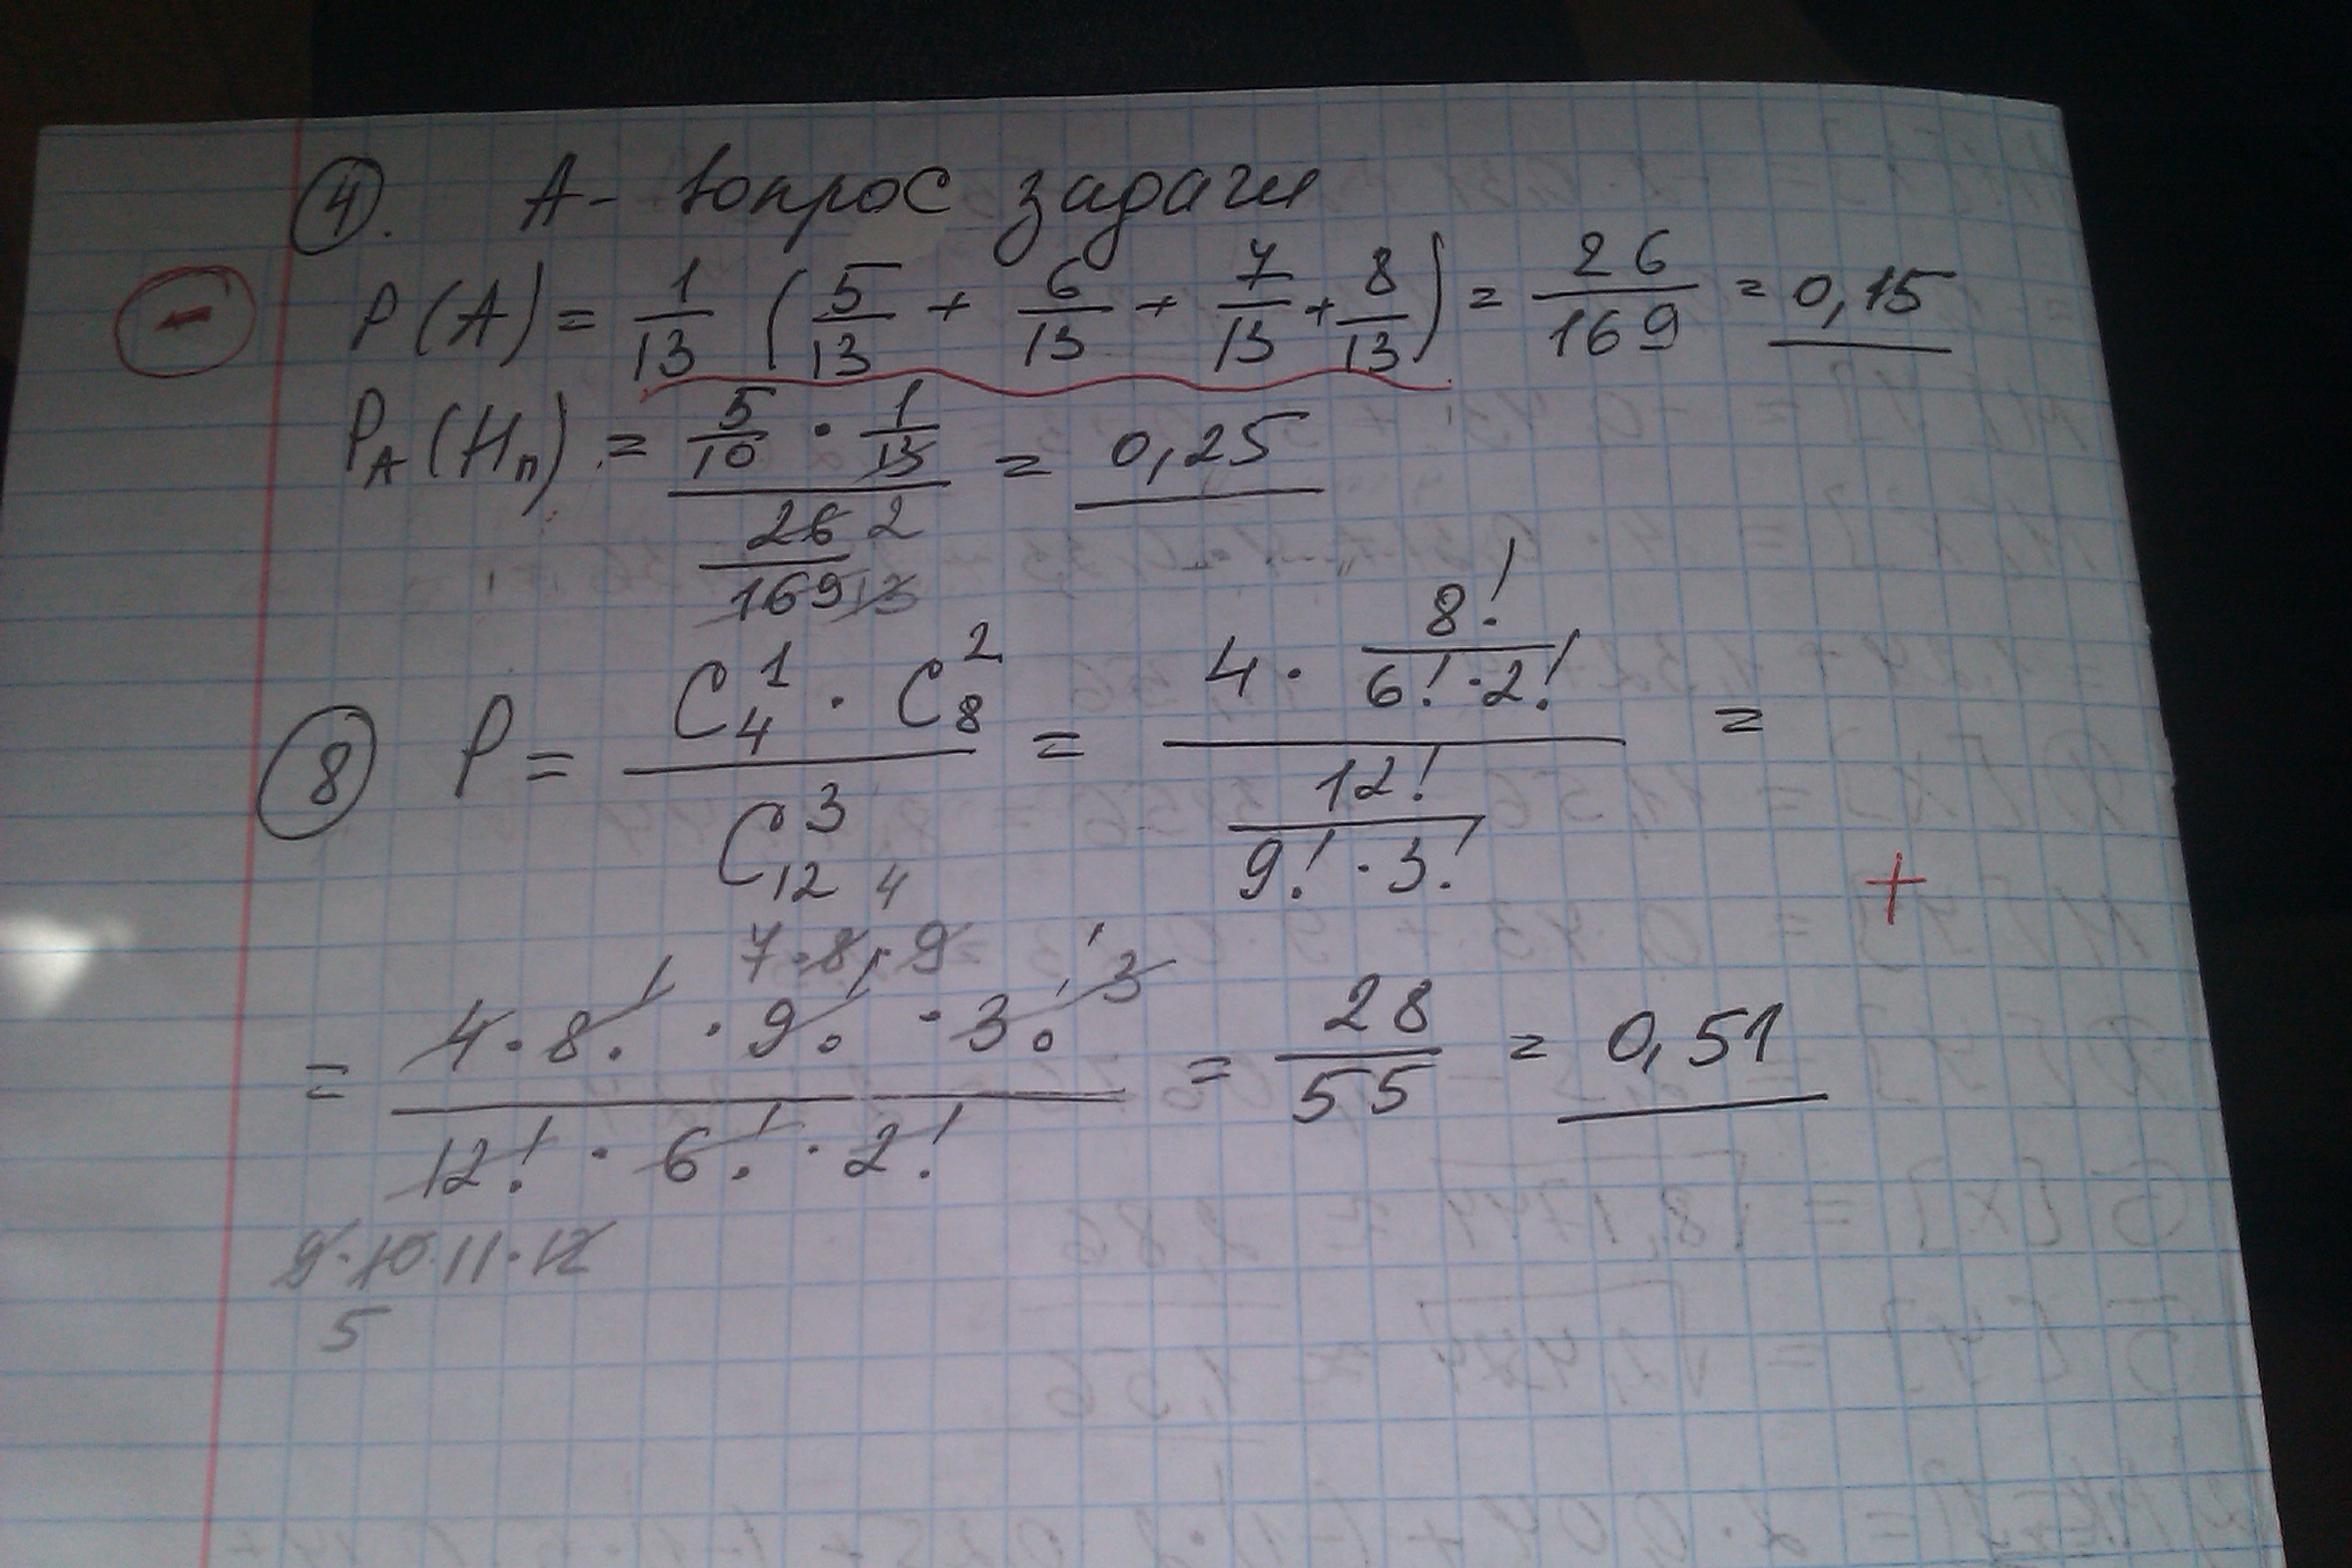 4. А - вопрос задачи
P(A) = 1/13 (5/13 + 6/13 + 7/13 + 8/13) = 26/169 = 0,15
-
P_A(H_п) = (5/10 · 1/13) / (26/169) = 0,25
2
13
8 P = (C_4^1 · C_8^2) / C_12^3 = (4 · 8!/(6! · 2!)) / (12!/(9! · 3!)) =
+
4
7·8·9
3
= (4 · 8! · 9! · 3!) / (12! · 6! · 2!) = 28/55 = 0,51
9·10·11·12
5